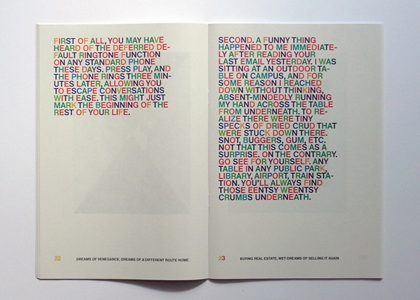 FIRST OF ALL, YOU MAY HAVE
HEARD OF THE DEFERRED DE-
FAULT RINGTONE FUNCTION
ON ANY STANDARD PHONE
THESE DAYS. PRESS PLAY, AND
THE PHONE RINGS THREE MIN-
UTES LATER, ALLOWING YOU
TO ESCAPE CONVERSATIONS
WITH EASE. THIS MIGHT JUST
MARK THE BEGINNING OF THE
REST OF YOUR LIFE.
DREAMS OF VENGEANCE, DREAMS OF A DIFFERENT ROUTE HOME
SECOND. A FUNNY THING
HAPPENED TO ME IMMEDIATE-
LY AFTER READING YOUR
LAST EMAIL YESTERDAY. I WAS
SITTING AT AN OUTDOOR TA-
BLE ON CAMPUS, AND FOR
SOME REASON I REACHED
DOWN WITHOUT THINKING,
ABSENT-MINDEDLY RUNNING
MY HAND ACROSS THE TABLE
FROM UNDERNEATH, TO RE-
ALIZE THERE WERE TINY
SPECKS OF DRIED CRUD THAT
WERE STUCK DOWN THERE.
SNOT, BUGGERS, GUM, ETC.
NOT THAT THIS COMES AS A
SURPRISE. ON THE CONTRARY.
GO SEE FOR YOURSELF. ANY
TABLE IN ANY PUBLIC PARK,
LIBRARY, AIRPORT, TRAIN STA-
TION. YOU'LL ALWAYS FIND
THOSE EENTSY WEENTSY
CRUMBS UNDERNEATH.
BUYING REAL ESTATE, WET-DREAMS OF SELLING IT AGAIN